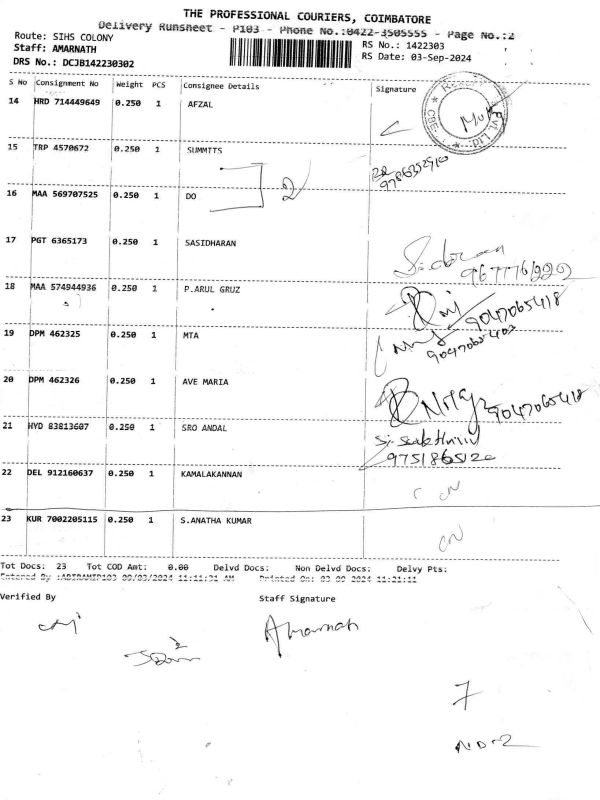 THE PROFESSIONAL COURIERS, COIMBATORE
Delivery Runsheet - P103 - Phone No.:0422-4505555 - Page No.:2
Route: SIHS COLONY
RS No.: 1422303
Staff: AMARNATH
RS Date: 03-Sep-2024
DRS No.: DCJB142230302
S No Consignment No Weight PCS Consignee Details Signature
14 HRD 714449649 0.250 1 AFZAL
15 TRP 4570672 0.250 1 SUMMITS
9786352910
16 MAA 569707525 0.250 1 DO 2
17 PGT 6365173 0.250 1 SASIDHARAN
9677761220
18 MAA 574944936 0.250 1 P.ARUL GRUZ
9047065418
19 DPM 462325 0.250 1 MTA
9047065403
20 DPM 462326 0.250 1 AVE MARIA
9047065418
21 HYD 83813607 0.250 1 SRO ANDAL
9751865120
22 DEL 912160637 0.250 1 KAMALAKANNAN CN
23 KUR 7002205115 0.250 1 S.ANATHA KUMAR CN
Tot Docs: 23 Tot COD Amt: 0.00 Delvd Docs: Non Delvd Docs: Delvy Pts:
Entered By :ABIRAMIP103 09/03/2024 11:11:31 AM Printed On: 03-09-2024 11:21:11
Verified By Staff Signature
Amarnath
7
ND-2